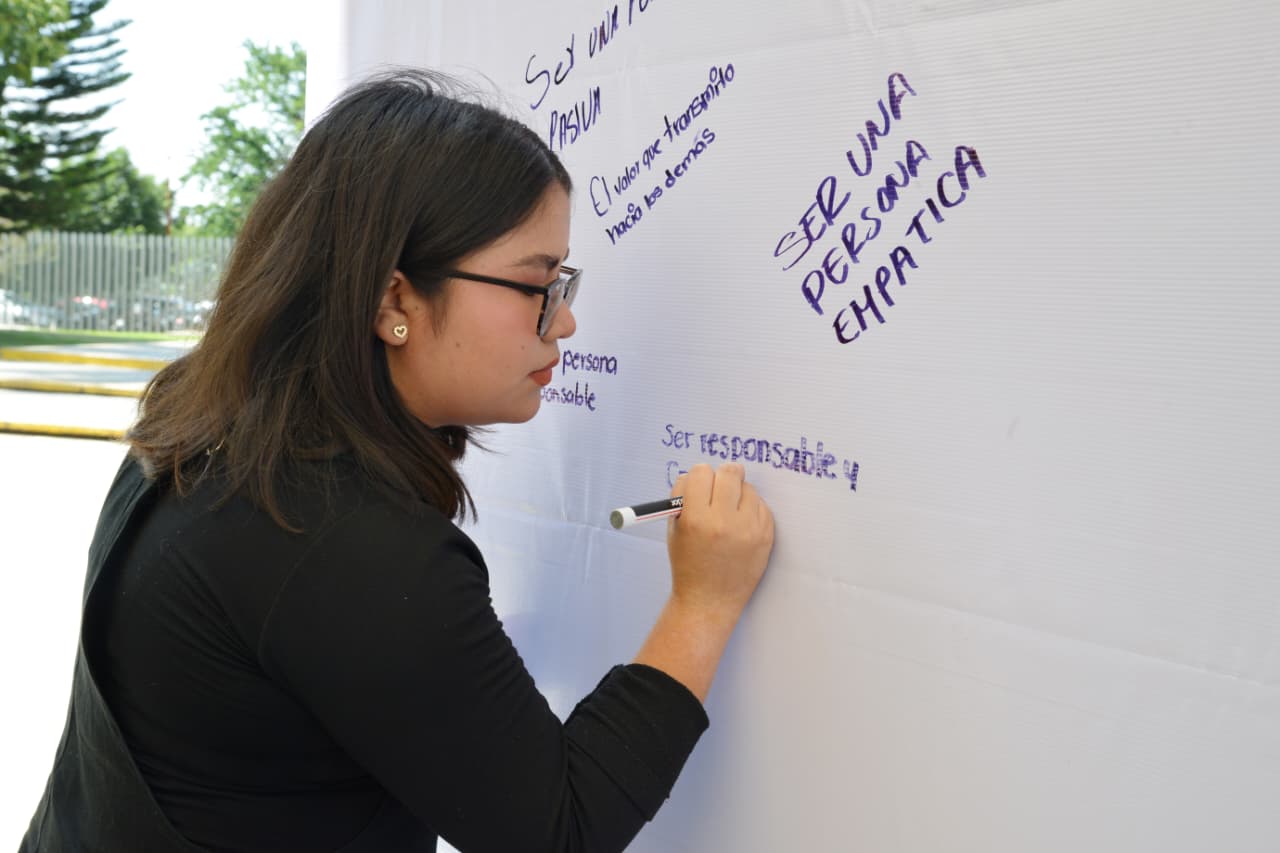 SER UNA
PASIVA
El valor que transmito
hacia los demás
SER UNA
PERSONA
EMPATICA
persona
Ser responsable y